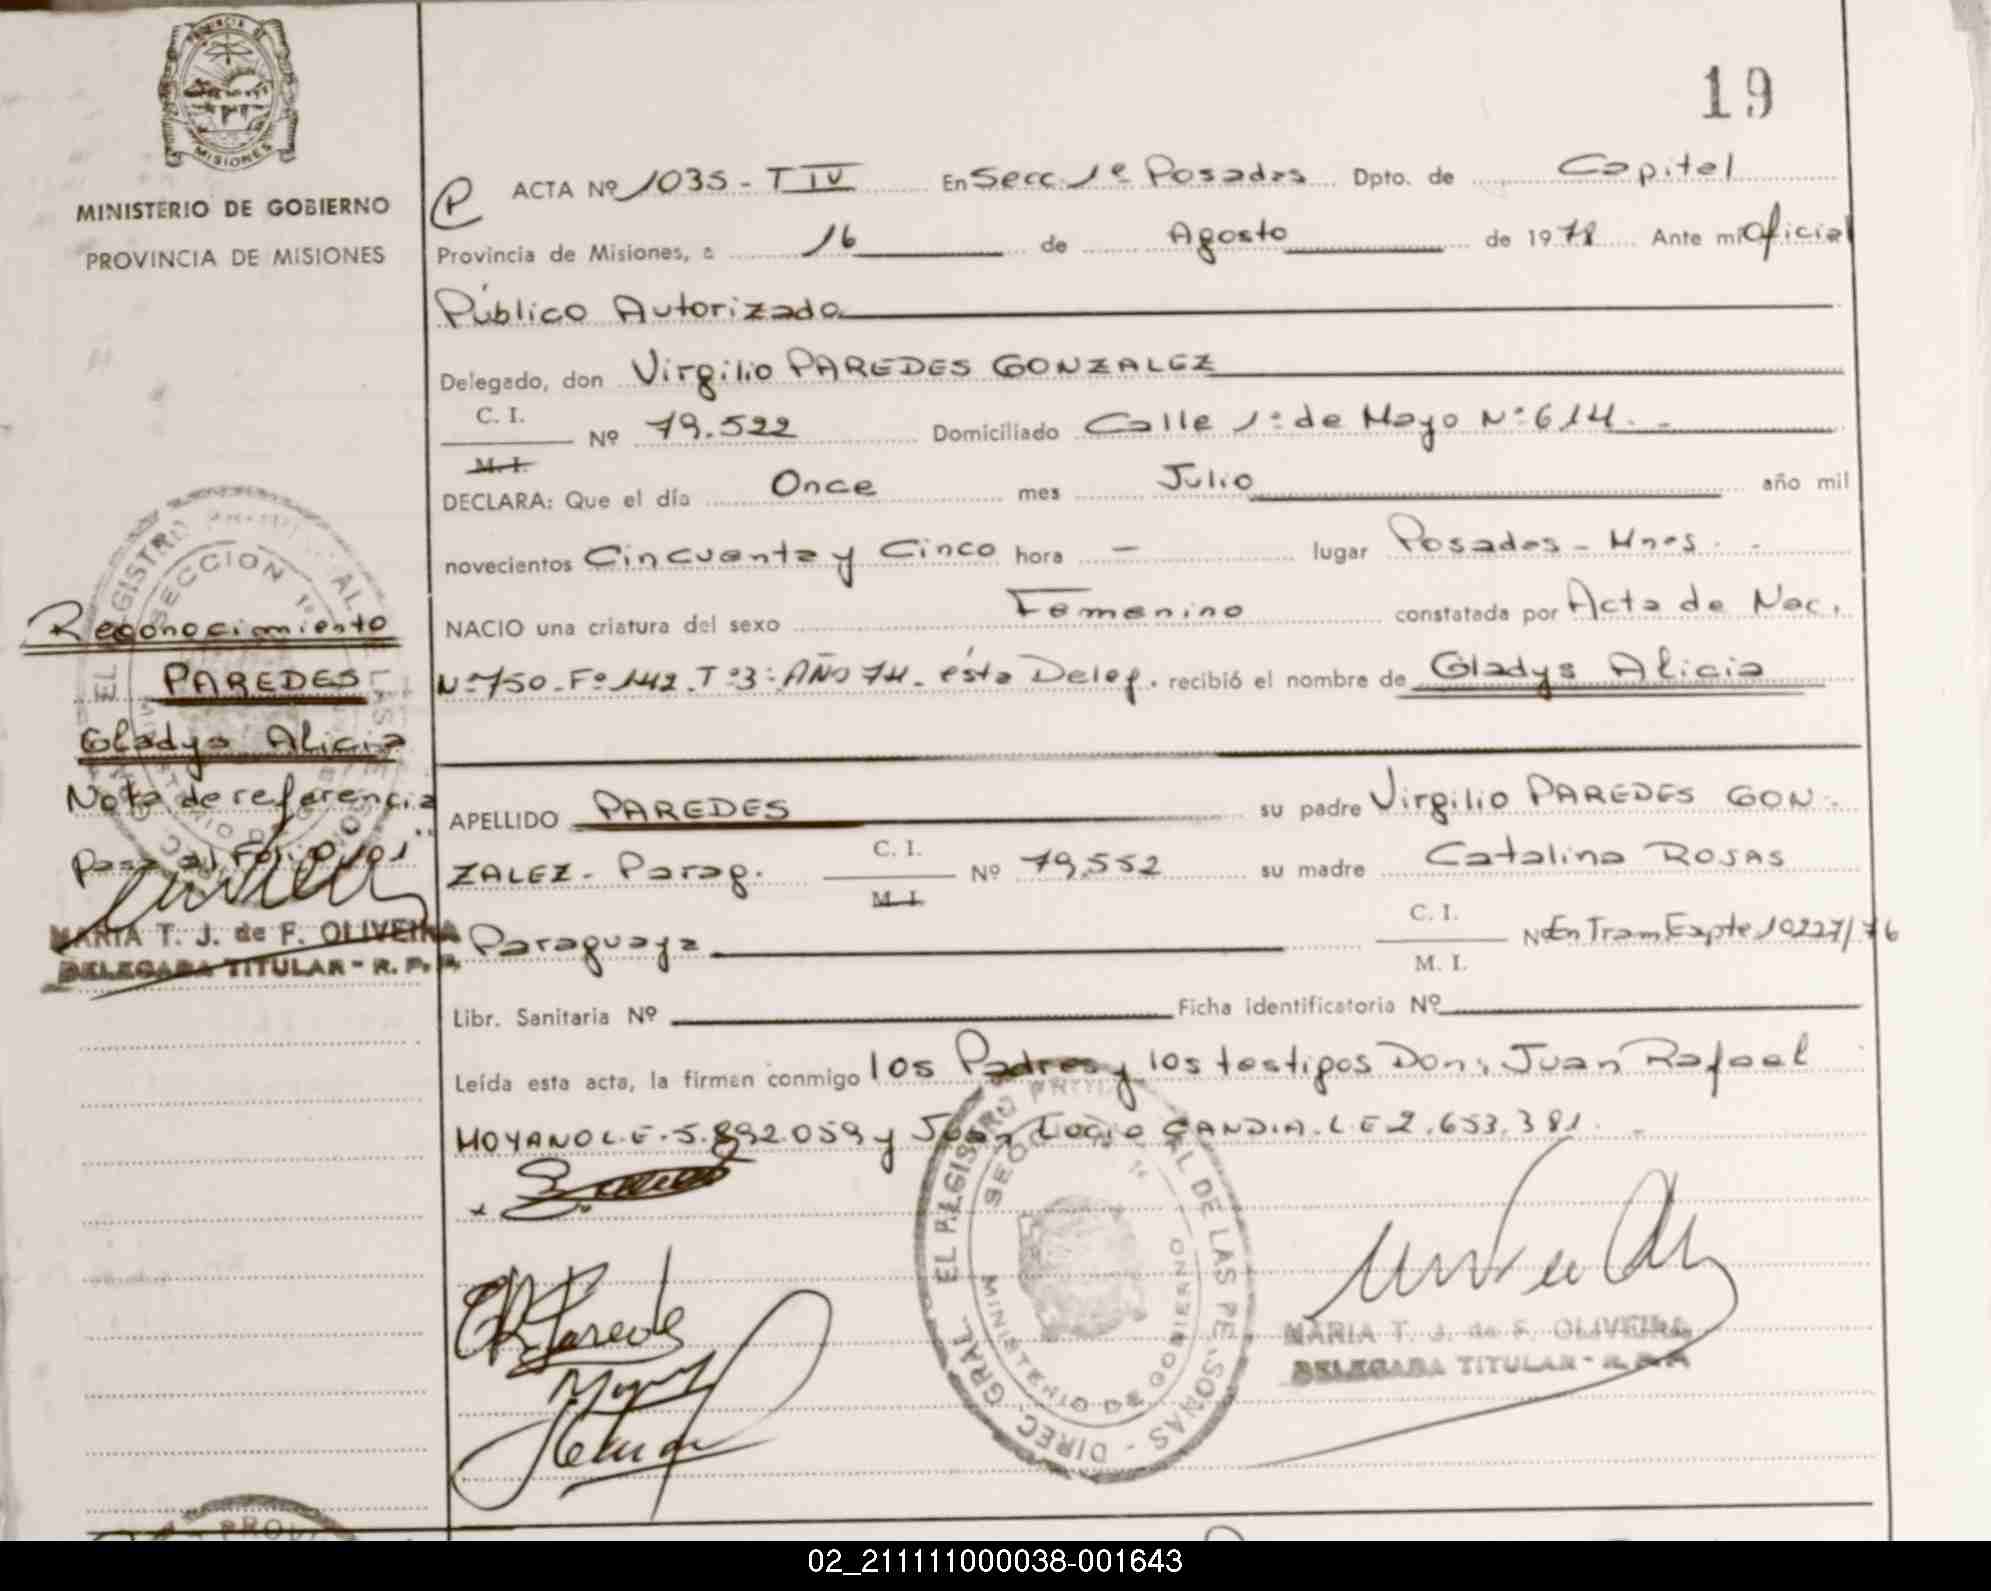 PROVINCIA DE
MISIONES
MINISTERIO DE GOBIERNO
PROVINCIA DE MISIONES
19
P ACTA Nº 1035 - T IV En Secc. 1ª Posadas Dpto. de Capital
Provincia de Misiones, a 16 de Agosto de 1978 Ante mi Oficial
Público Autorizado
Delegado, don Virgilio PAREDES GONZALEZ
C. I.
M. I.
Nº 79.522 Domiciliado Calle 1º de Mayo Nº 614. -
DECLARA: Que el día Once mes Julio año mil
novecientos Cincuenta y Cinco hora - lugar Posadas - Mnes. -
NACIO una criatura del sexo Femenino constatada por Acta de Nac.
Nº 750. Fº 142. Tº 3: AÑO 74. ésta Deleg. recibió el nombre de Gladys Alicia
APELLIDO PAREDES su padre Virgilio PAREDES GON-
ZALEZ - Parag. C. I. Nº 79.552 su madre Catalina ROJAS
M. I.
Paraguaya C. I. Nº En Tram. Expte 10227/76
M. I.
Libr. Sanitaria Nº Ficha identificatoria Nº
Leída esta acta, la firman conmigo los Padres y los testigos Don: Juan Rafael
MOYANO L.E. 5.892.059 y Juan Lucio CANDIA. L E 2.653.381. -
Reconocimiento
PAREDES
Gladys Alicia
Nota de referencia
Pasa al Folio
MARIA T. J. de F. OLIVEIRA
DELEGADA TITULAR - R. P. P.
DIREC. GRAL. EL REGISTRO PROVINCIAL DE LAS PERSONAS -
SECCION 1ª
MINISTERIO DE GOBIERNO
Paredes
MARIA T. J. de F. OLIVEIRA
DELEGADA TITULAR - R. P. P.
PROV
02_211111000038-001643